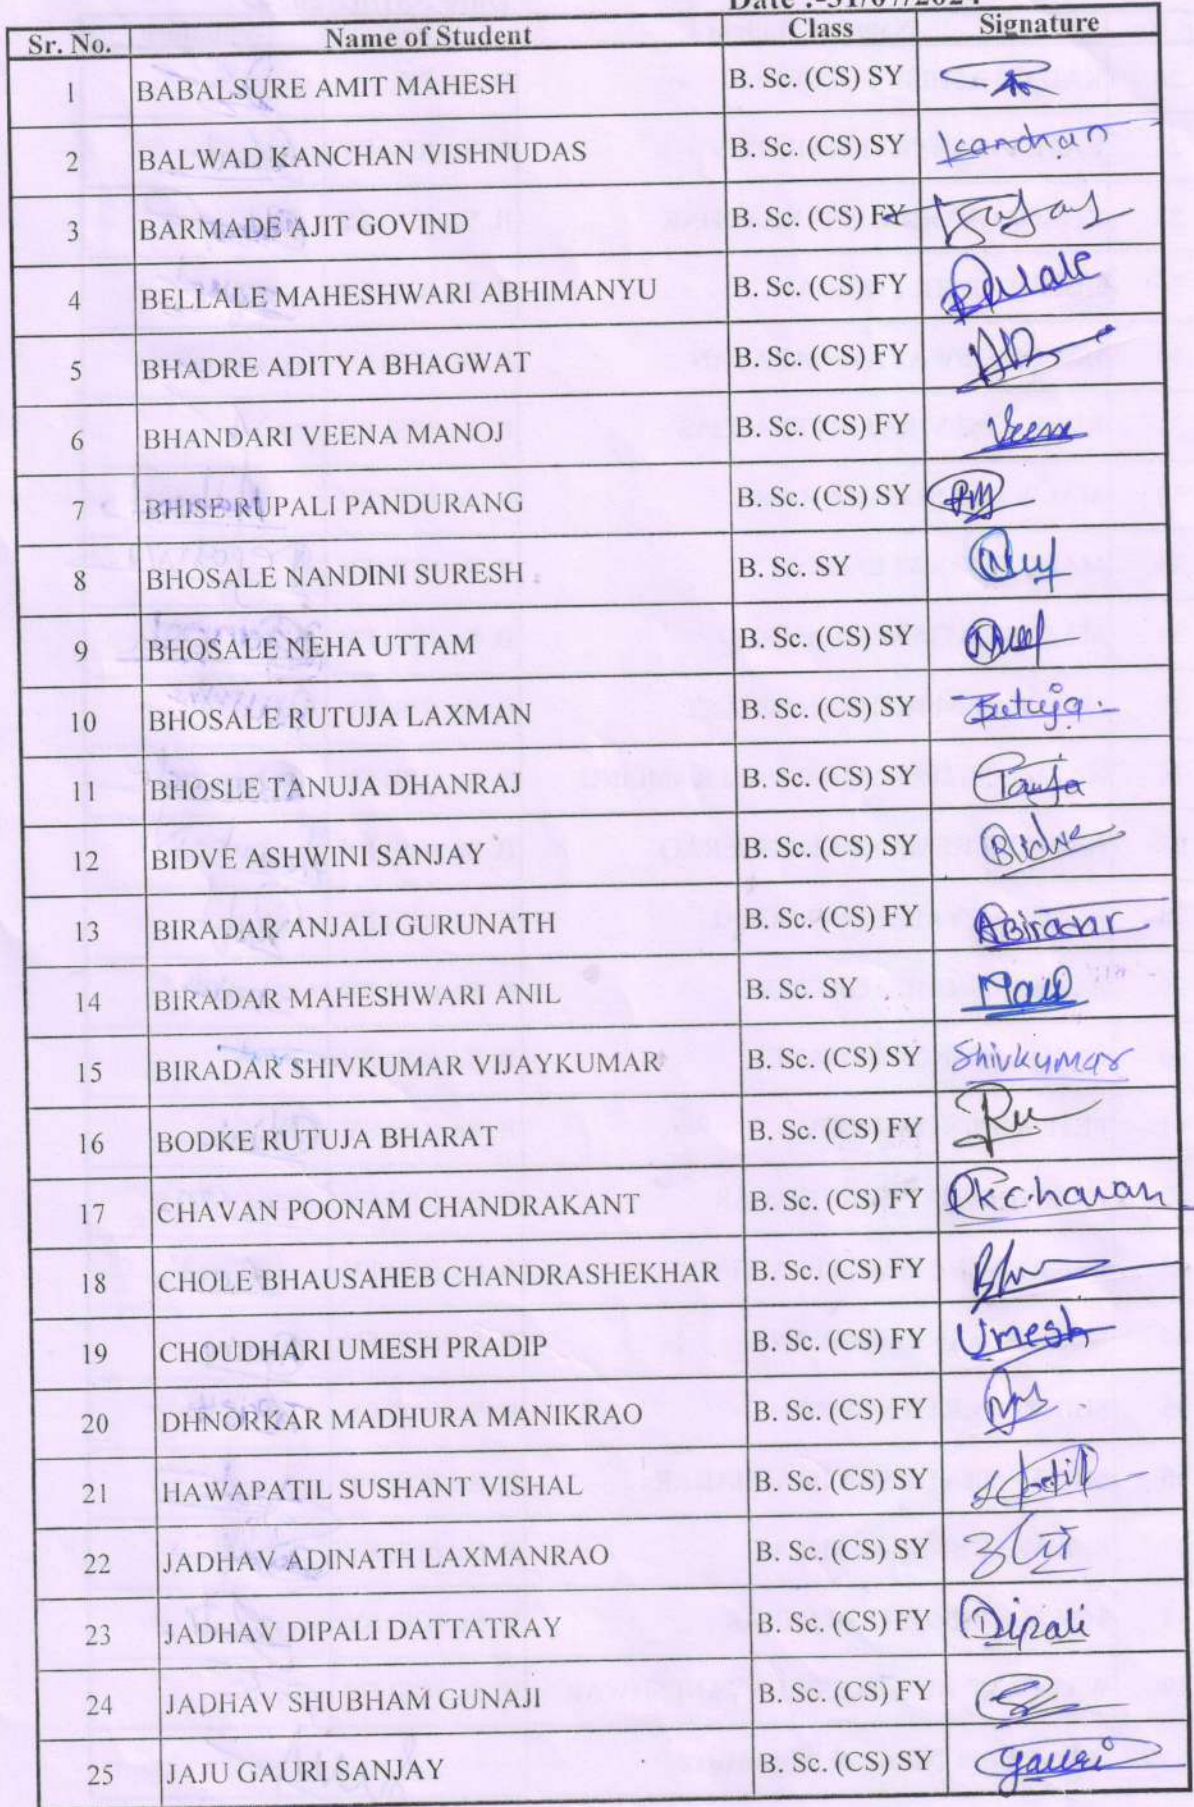 Date :-31/07/2024
Sr. No. Name of Student Class Signature
1 BABALSURE AMIT MAHESH B. Sc. (CS) SY
2 BALWAD KANCHAN VISHNUDAS B. Sc. (CS) SY Kanchan
3 BARMADE AJIT GOVIND B. Sc. (CS) FY
4 BELLALE MAHESHWARI ABHIMANYU B. Sc. (CS) FY
5 BHADRE ADITYA BHAGWAT B. Sc. (CS) FY
6 BHANDARI VEENA MANOJ B. Sc. (CS) FY Veena
7 BHISE RUPALI PANDURANG B. Sc. (CS) SY
8 BHOSALE NANDINI SURESH B. Sc. SY
9 BHOSALE NEHA UTTAM B. Sc. (CS) SY
10 BHOSALE RUTUJA LAXMAN B. Sc. (CS) SY Rutuja
11 BHOSLE TANUJA DHANRAJ B. Sc. (CS) SY
12 BIDVE ASHWINI SANJAY B. Sc. (CS) SY Bidve
13 BIRADAR ANJALI GURUNATH B. Sc. (CS) FY ABiradar
14 BIRADAR MAHESHWARI ANIL B. Sc. SY
15 BIRADAR SHIVKUMAR VIJAYKUMAR B. Sc. (CS) SY Shivkumar
16 BODKE RUTUJA BHARAT B. Sc. (CS) FY
17 CHAVAN POONAM CHANDRAKANT B. Sc. (CS) FY Pkchavan
18 CHOLE BHAUSAHEB CHANDRASHEKHAR B. Sc. (CS) FY
19 CHOUDHARI UMESH PRADIP B. Sc. (CS) FY Umesh
20 DHNORKAR MADHURA MANIKRAO B. Sc. (CS) FY
21 HAWAPATIL SUSHANT VISHAL B. Sc. (CS) SY
22 JADHAV ADINATH LAXMANRAO B. Sc. (CS) SY
23 JADHAV DIPALI DATTATRAY B. Sc. (CS) FY Dipali
24 JADHAV SHUBHAM GUNAJI B. Sc. (CS) FY
25 JAJU GAURI SANJAY B. Sc. (CS) SY Gauri